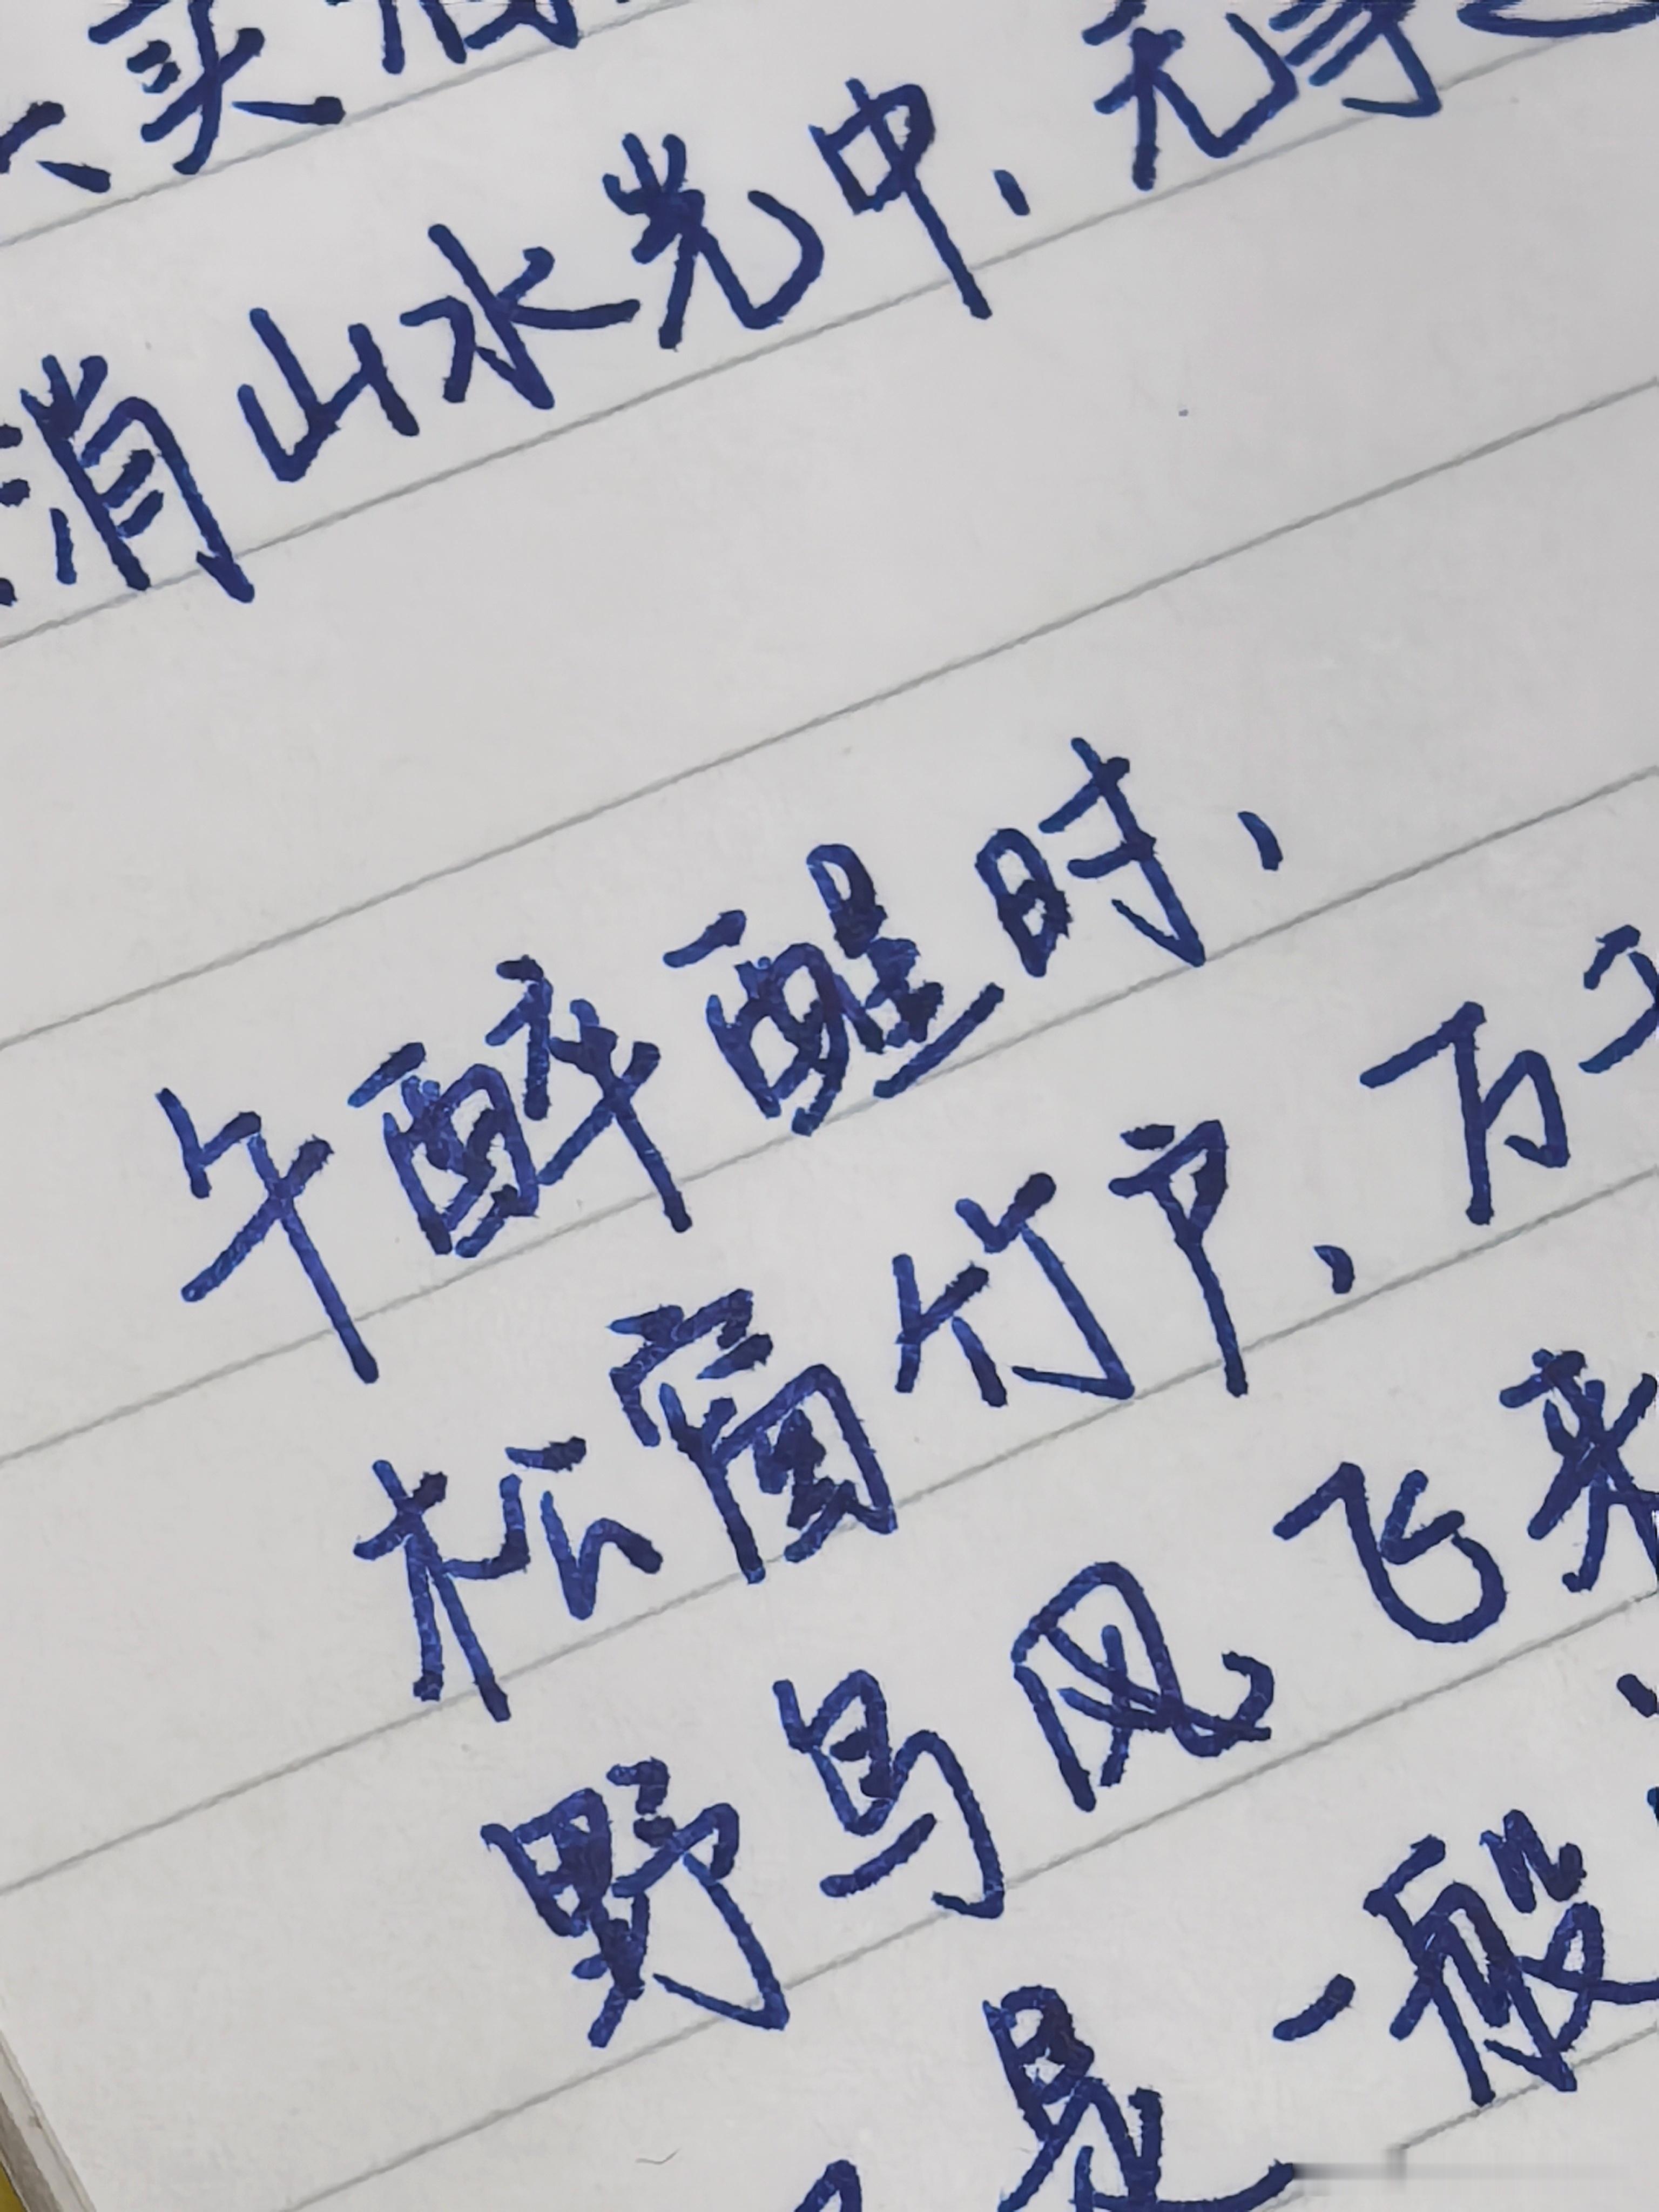 买
消山水光中、无事
午醉醒时、
松窗竹户、万
野鸟风飞来
是一般